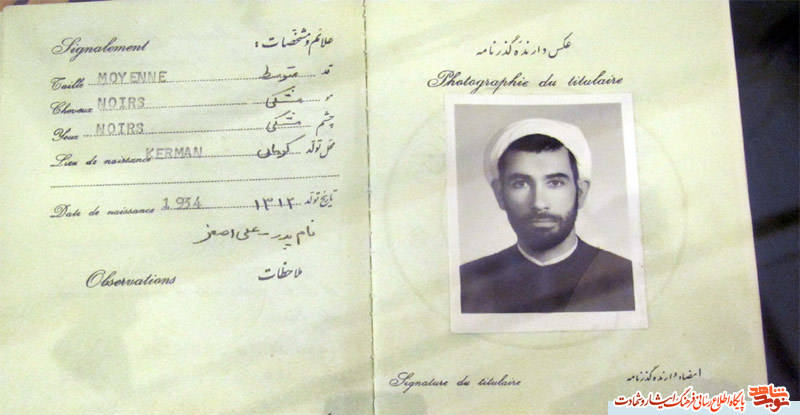 Signalement علائم و مشخصات :
Taille MOYENNE متوسط قد
Cheveux NOIRS مشکی مو
Yeux NOIRS مشکی چشم
Lieu de naissance KERMAN کرمان محل تولد
Date de naissance 1934 ۱۳۱۲ تاریخ تولد
نام پدر - علی اصغر
Observations ملاحظات
عکس دارنده گذرنامه
Photographie du titulaire
Signature du titulaire امضاء دارنده گذرنامه
نوید شاهد پایگاه اطلاع رسانی فرهنگ ایثار و شهادت